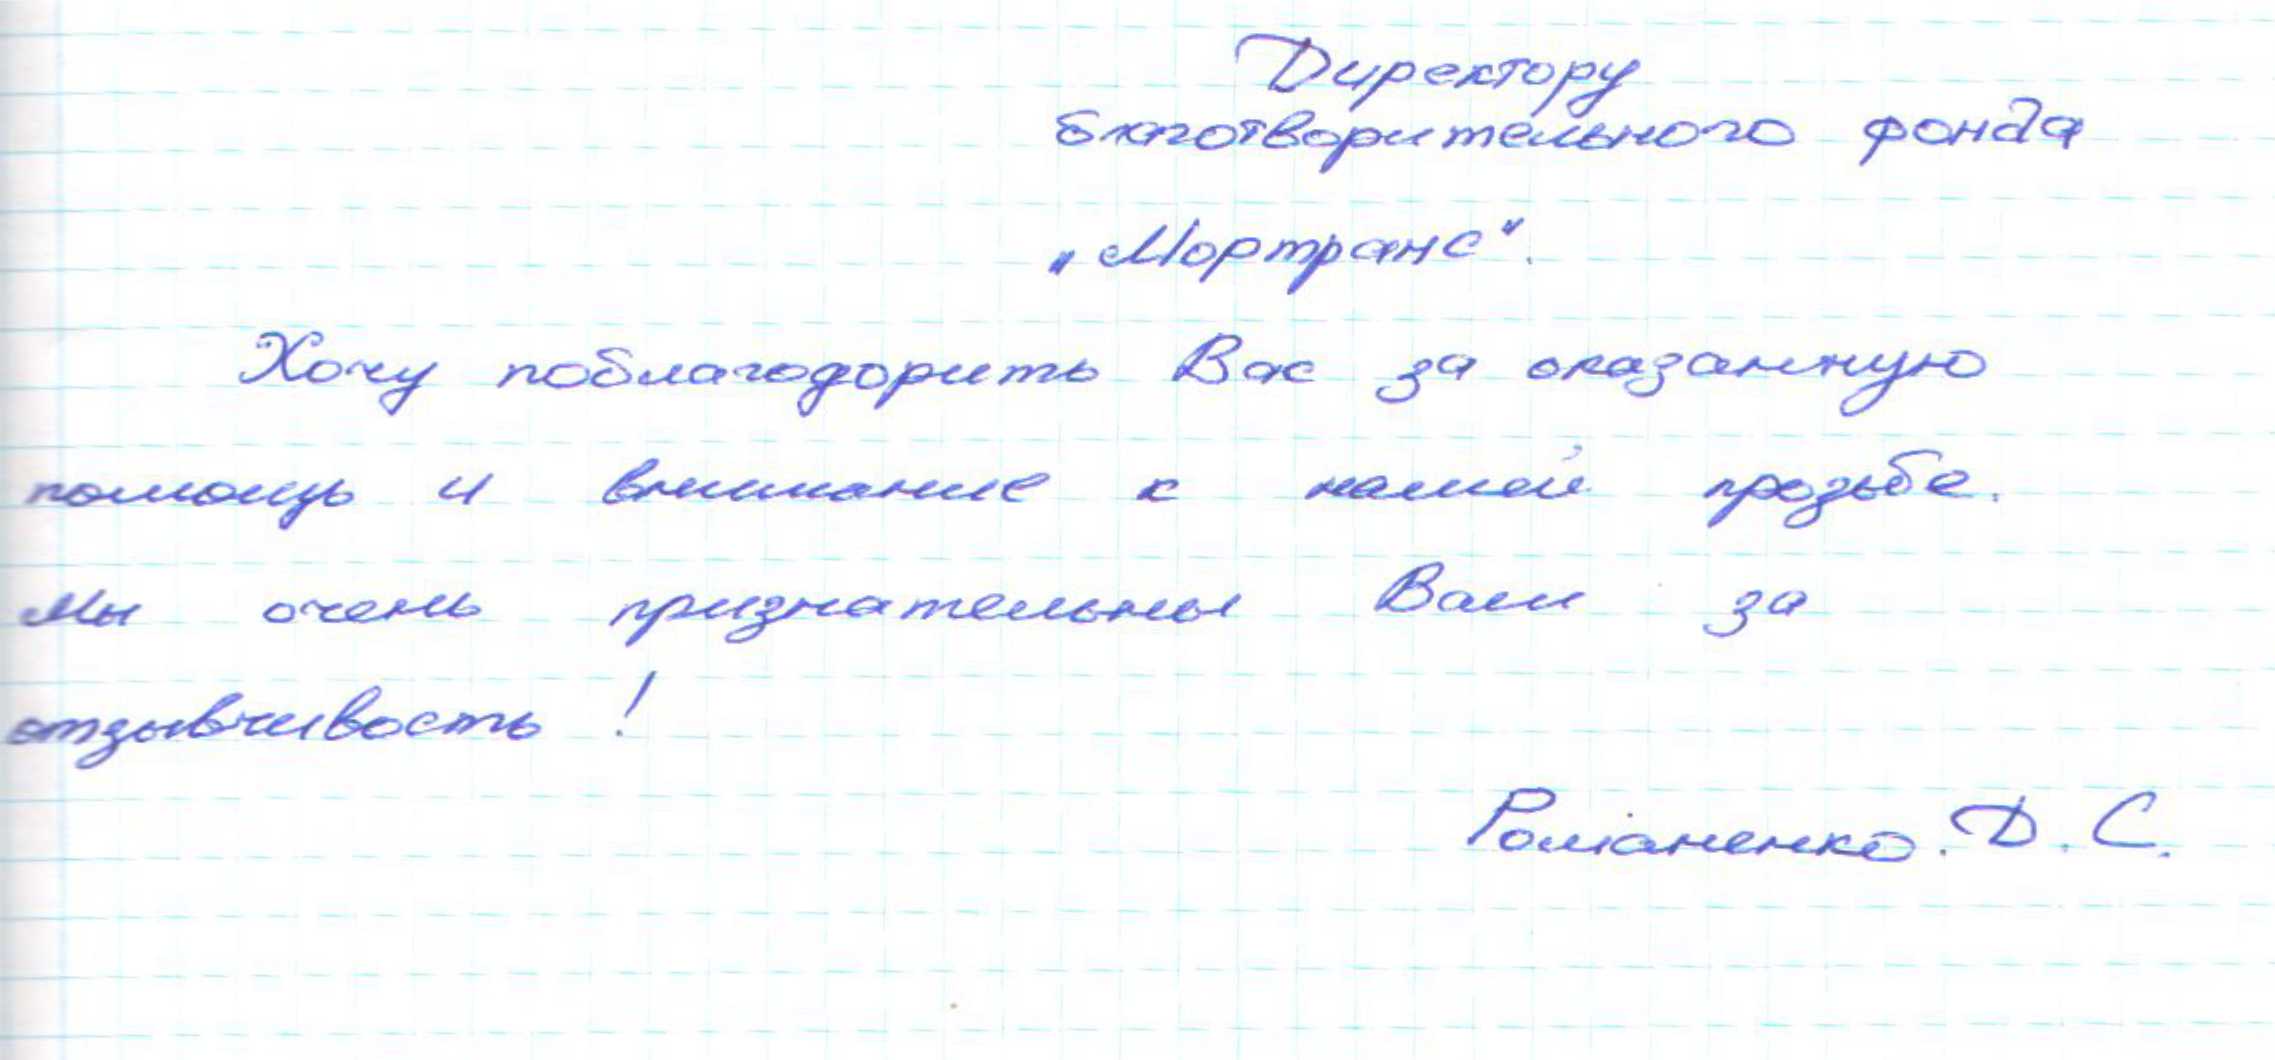 Директору
благотворительного фонда
„Мортранс".
Хочу поблагодорить Вас за оказанную
помощь и внимание к нашей прозьбе.
Мы очень признательны Вам за
отзывчивость!
Романенко. Д. С.